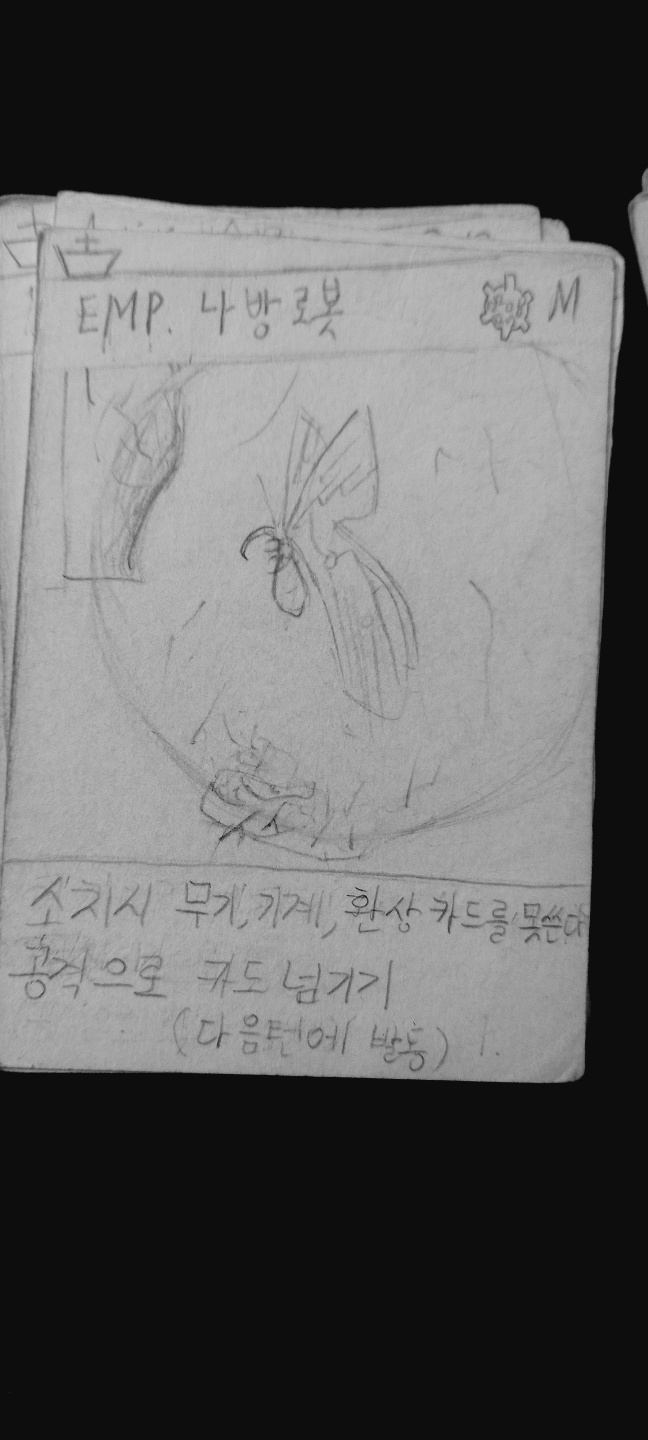 EMP. 나방로봇 M
소지시 무기, 기계, 환상 카드를 못쓴다
공격으로 카드 넘기기
(다음턴에 발동)